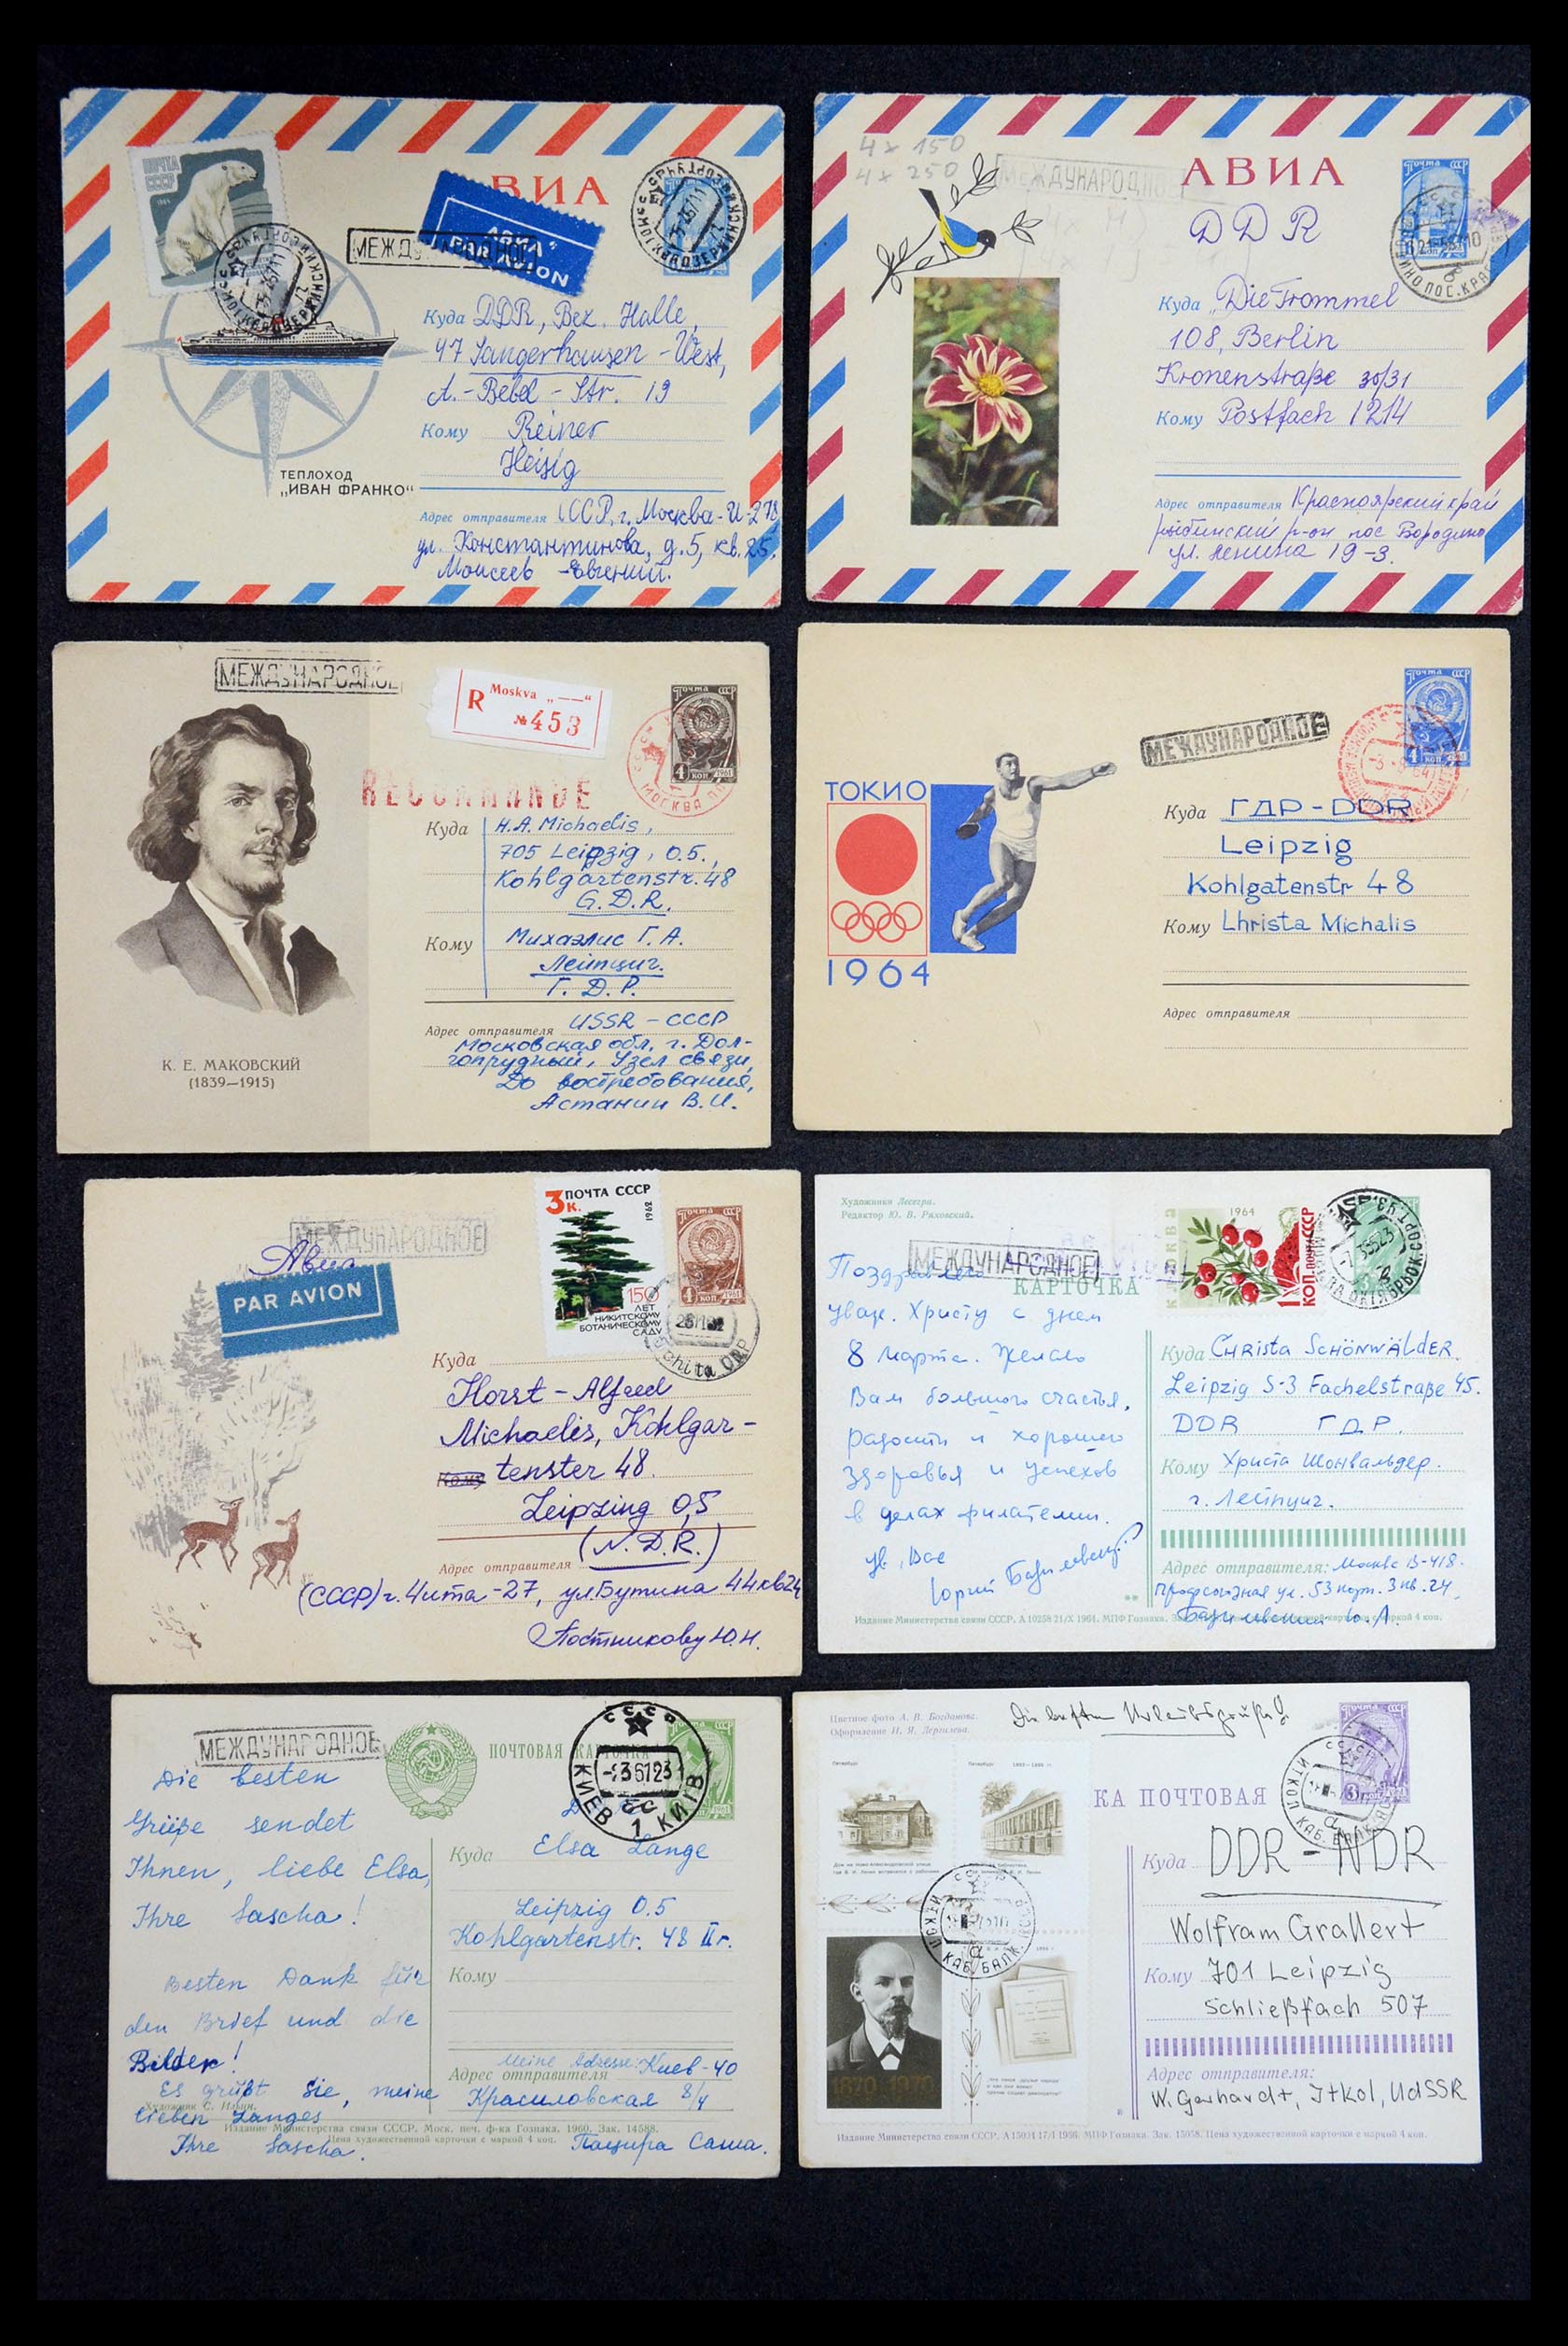 ПОЧТА
СССР
АВИА
АВИА
PAR AVION
Куда DDR, Bez. Halle,
47 Sangerhausen - West,
A.-Bebel - Str. 19
Кому Reiner
Heisig
ТЕПЛОХОД
„ИВАН ФРАНКО“
Адрес отправителя СССР, г. Москва-И-278
ул. Константинова, д. 5, кв. 25.
Моисеев Евгений.
4 x 150
4 x 250
МЕЖДУНАРОДНОЕ
АВИА
Почта СССР
DDR
Куда „Die Trommel
108, Berlin
Kronenstraße 30/31
Кому Postfach 1214
Адрес отправителя Красноярский край
рыбинский р-он пос Бородино
ул. Ленина 19-3.
МЕЖДУНАРОДНОЕ
R Moskva „—“
№ 453
Почта СССР
4 коп 1961
RECOMMANDE
Куда H.A. Michaelis,
705 Leipzig, O.5.,
Kohlgartenstr. 48
G.D.R.
Кому Михаэлис Г. А.
Лейпциг.
Г. Д. Р.
Адрес отправителя USSR - СССР
Московская обл. г. Дол-
гопрудный, Узел связи,
До востребования,
Астанин В. И.
К. Е. МАКОВСКИЙ
(1839—1915)
МЕЖДУНАРОДНОЕ
Почта СССР
4 коп 1961
ТОКИО
1964
Куда ГДР - DDR
Leipzig
Kohlgatenstr 48
Кому Lhrista Michalis
Адрес отправителя
МЕЖДУНАРОДНОЕ
Авиа
PAR AVION
3 к. ПОЧТА СССР
1962
150
ЛЕТ
НИКИТСКОМУ
БОТАНИЧЕСКОМУ
САДУ
Почта СССР
4 коп 1961
Куда
Horst - Alfred
Michaelis, Kohlgar-
Кому tenster 48.
Leipzing O,5
(N.D.R.)
Адрес отправителя
(СССР) г. Чита-27, ул. Бутина 44 кв 24
Постникову Ю. Н.
Редактор Ю. В. Ряховский.
МЕЖДУНАРОДНОЕ
КАРТОЧКА
1964
КЛЮКВА
ПОЧТА СССР
Поздравляю
уваж. Христу с днем
8 марта. Желаю
Вам большого счастья,
радости и хорошего
здоровья и успехов
в делах филателии.
Юрий
Куда CHRista SCHÖNWÄLDER.
Leipzig S-3 Fachelstraße 45.
DDR ГДР.
Кому Христа Шонвальдер.
г. Лейпциг.
Адрес отправителя: Москва В-418.
Профсоюзная ул. 53 корп. 3 кв. 24.
Издание Министерства связи СССР. А 10258 21/X 1964. МПФ Гознака.
МЕЖДУНАРОДНОЕ
ПОЧТОВАЯ КАРТОЧКА
СССР
КИЕВ 1 КИЇВ
Die besten
Grüße sendet
Ihnen, liebe Elsa,
Ihre Sascha!
Besten Dank für
den Brief und die
Bilder!
Es grüßt Sie, meine
lieben Langes
Ihre Sascha.
Куда Elsa Lange
Leipzig O.5
Kohlgartenstr. 48 II r.
Кому
Meine Adresse: Киев-40
Адрес отправителя
Красиловская 8/4
Пацира Саша.
Издание Министерства связи СССР. Моск. печ. ф-ка Гознака. 1960. Зак. 14588.
Цена художественной карточки с маркой 4 коп.
Цветное фото А. В. Богданова.
Оформление И. Я. Дергилева.
Die besten Urlaubsgrüße!
КА ПОЧТОВАЯ
1870-1970
Куда DDR - NDR
Wolfram Grallert
Кому 701 Leipzig
Schließfach 507
Адрес отправителя:
W. Gerhardt, Itkol, UdSSR
Издание Министерства связи СССР. А 15031 17/I 1966. МПФ Гознака. Зак. 15058. Цена художественной карточки с маркой 4 коп.